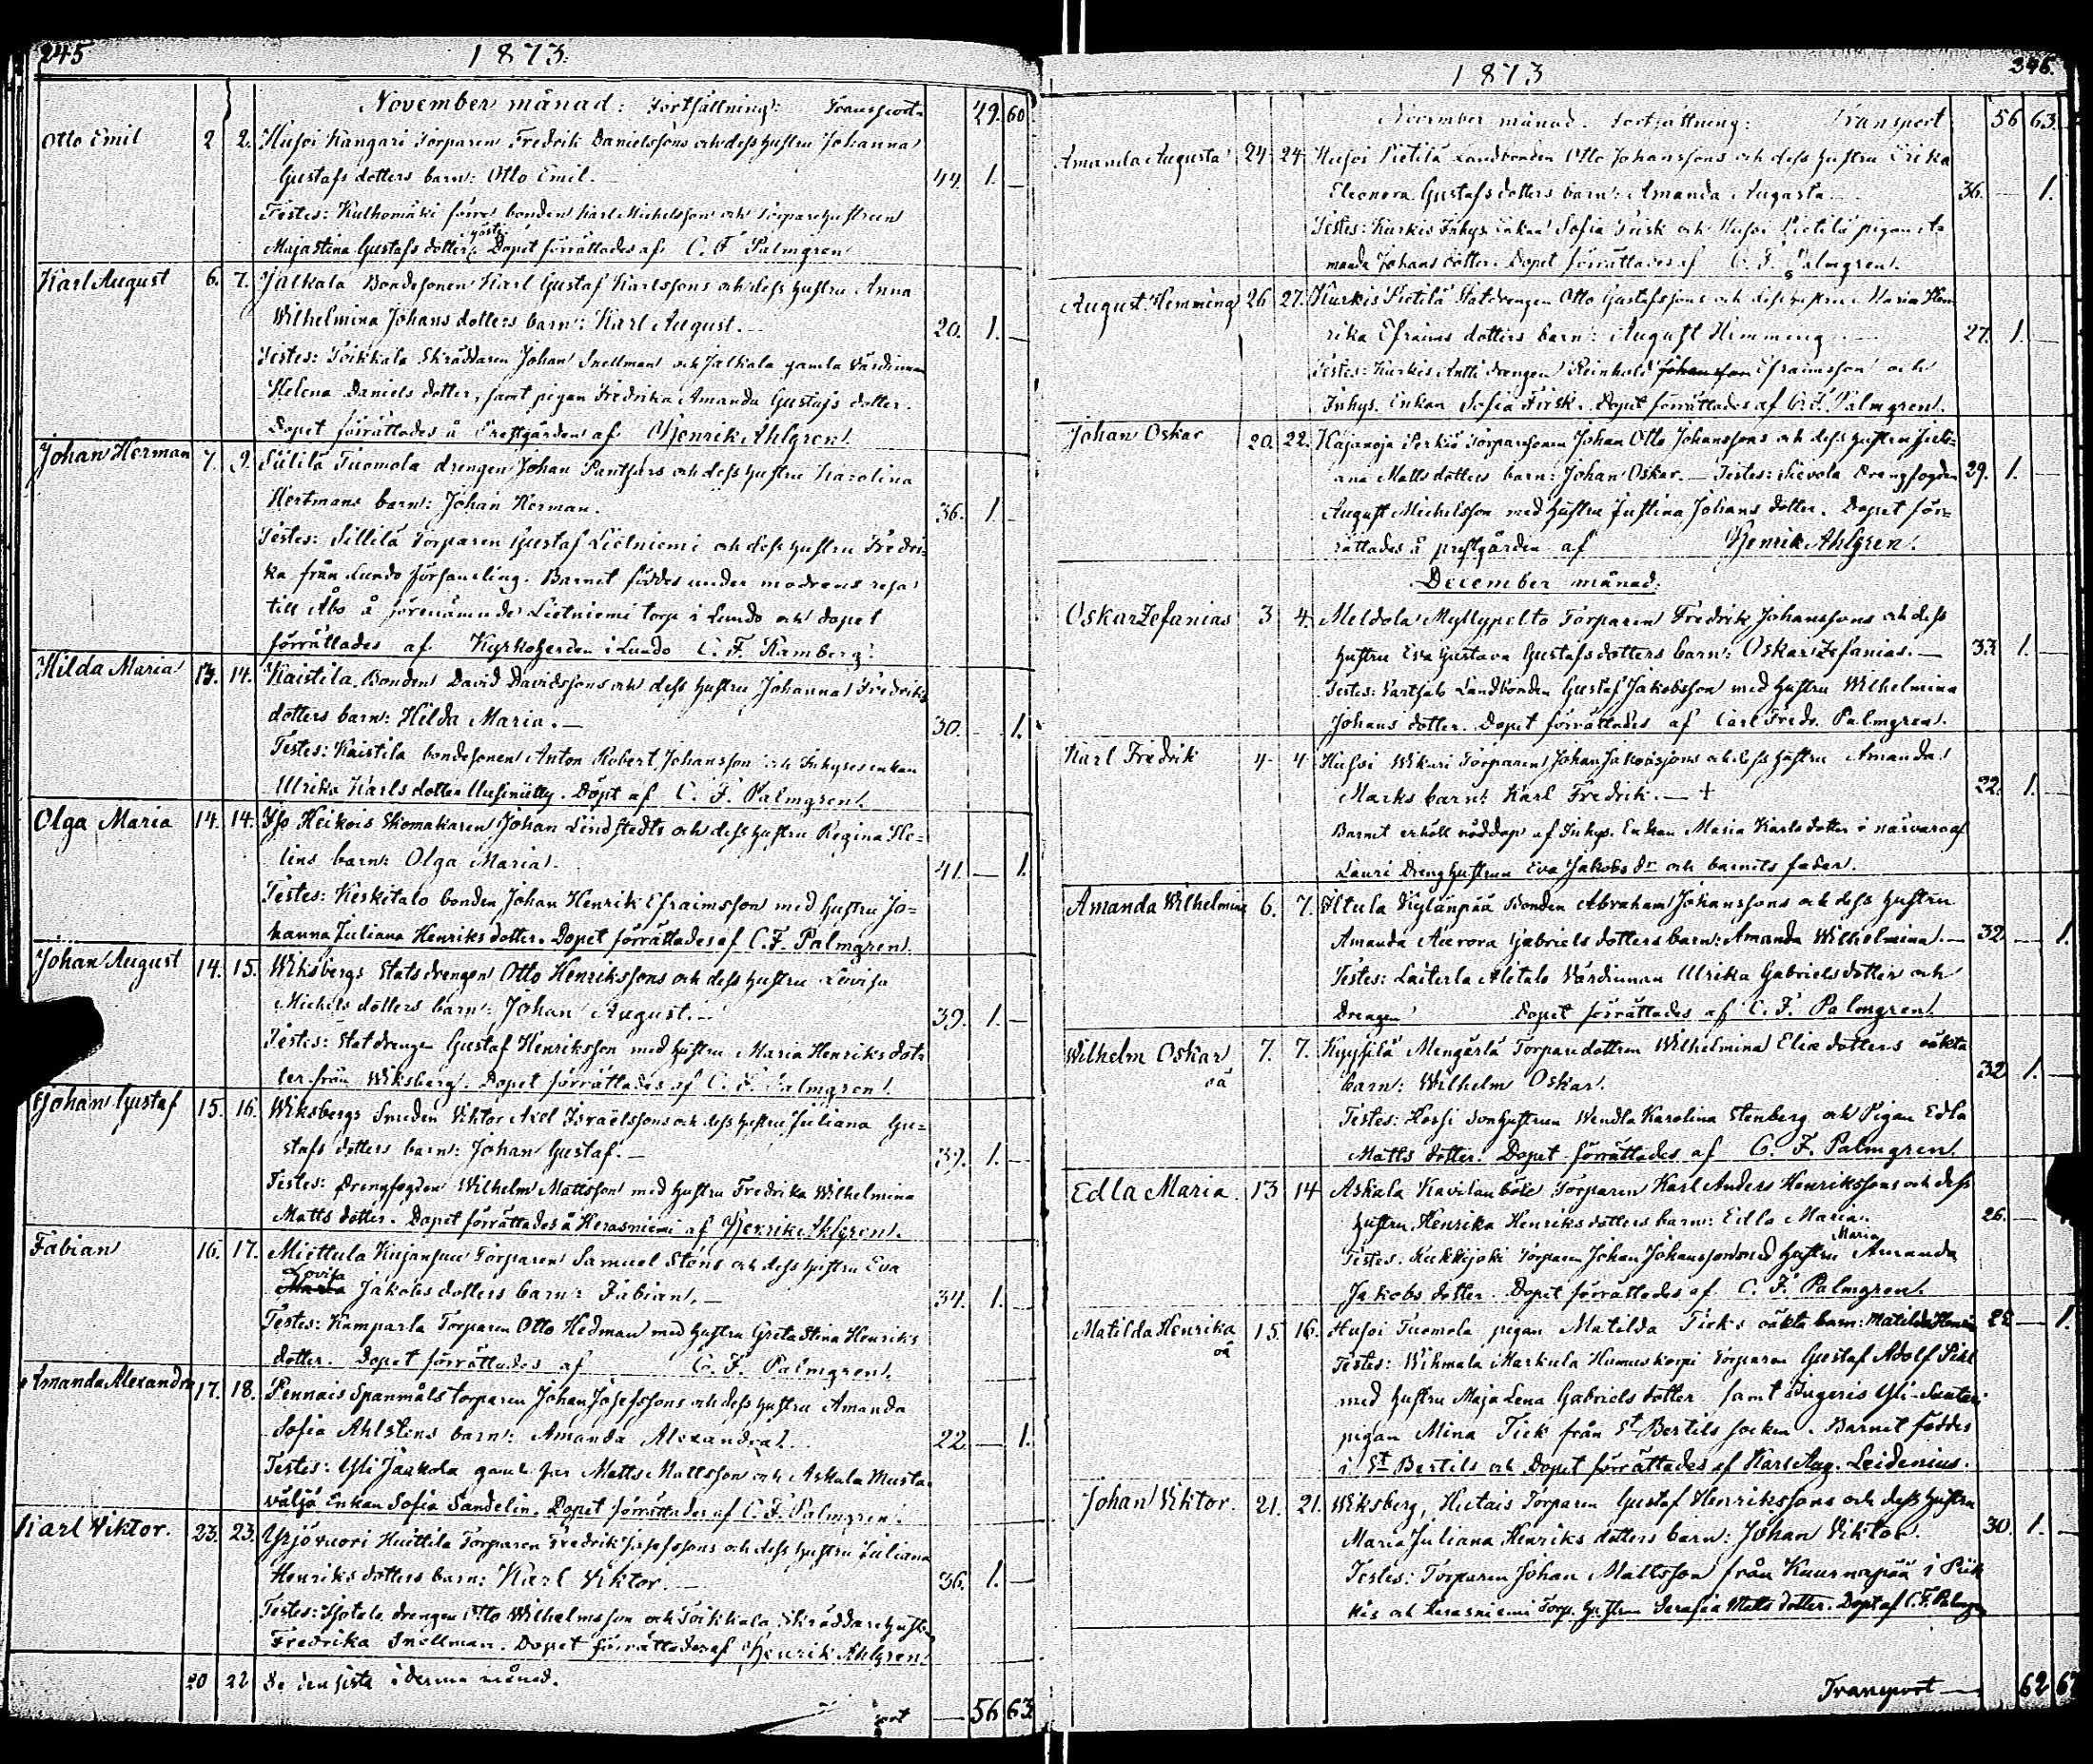 245
1873.
November månad: Fortsättning: Transport
49. 60
Otto Emil 2 2. Hussoi Kangari Torparen Fredrik Danielssons och dess hustru Johanna
Gustafs dotters barn: Otto Emil. 44. 1. —
Testes: Kulhomäki förre bonden Karl Michelsson och Torparehustrun
Majastina Gustafs dotter. Dopet förrättades af C. F. Palmgren
Karl August 6. 7. Jalkala Bondesonen Karl Gustaf Karlssons och dess hustru Anna
Wilhelmina Johans dotters barn: Karl August. — 20. 1. —
Testes: Toikkala Skräddaren Johan Snellman och Jalkala gamla Värdinnan
Helena Daniels dotter, samt pigan Fredrika Amanda Gustafs dotter.
Dopet förrättades å Prestgården af Henrik Ahlgren.
Johan Herman 7. 9. Tuomola drengen Johan Pantsars och dess hustru Karolina
Hertmans barn: Johan Herman. 36. 1. —
Testes: Sillilä Torparen Gustaf Lietniemi och dess hustru Fredri-
ka från Lundo församling. Barnet föddes under modrens resa
till Åbo å förenämnde Lietniemi torp i Lundo och dopet
förrättades af Kyrkoherden i Lundo C. F. Ramberg.
Hilda Maria 13. 14. Kaistila Bonden David Davidssons och dess hustru Johanna Fredriks
dotters barn: Hilda Maria. — 30. — 1.
Testes: Kaistila bondesonen Anton Robert Johansson och Inhysesenkan
Ulrika Karls dotter Uusinitty. Döpt af C. F. Palmgren.
Olga Maria 14. 14. Yso Heikois Skomakaren Johan Lindstedts och dess hustru Regina He-
lins barn: Olga Maria. 41. — 1.
Testes: Kesketalo bonden Johan Henrik Efraimsson med hustru Jo-
hanna Juliana Henriks dotter. Dopet förrättades af C. F. Palmgren.
Johan August 14. 15. Wiksbergs Statsdrengen Otto Henrikssons och dess hustru Lovisa
Michels dotters barn: Johan August. — 39. 1. —
Testes: Statdrengen Gustaf Henriksson med hustru Maria Henriks dot-
ter från Wiksberg. Dopet förrättades af C. F. Palmgren.
Johan Gustaf 15. 16. Wiksbergs Smeden Viktor Axel Israëlssons och dess hustru Juliana Gu-
stafs dotters barn: Johan Gustaf. — 39. 1. —
Testes: Drengfogden Wilhelm Mattsson med hustru Fredrika Wilhelmina
Matts dotter. Dopet förrättades å Herasniemi af Henrik Ahlgren.
Fabian 16. 17. Miettula Kujanpuu Torparen Samuel Stens och dess hustru Eva
Lovisa
Maria Jakobs dotters barn: Fabian. — 34. 1. —
Testes: Kamparla Torparen Otto Hedman med hustru Greta Stina Henriks
dotter. Dopet förrättades af C. F. Palmgren.
Amanda Alexandra 17. 18. Pennais Spanmåls torparen Johan Josefssons och dess hustru Amanda
Sofia Ahlstens barn: Amanda Alexandra. 22. — 1.
Testes: Yli Jaakola Matts Mattsson och Askala Musta-
väljä Enkan Sofia Sandelin. Dopet förrättades af C. F. Palmgren.
Karl Viktor. 23. 23. Yrjövuori Huittila Torparen Fredrik Josefssons och dess hustru Juliana
Henriks dotters barn: Karl Viktor. — 36. 1. —
Testes: drengen Otto Wilhelmsson och Toikkala Skräddarehustr.
Fredrika Snellman. Dopet förrättades af Henrik Ahlgren
20 22 Se den sista i denna månad.
— 56 63
346.
1873
November månad. Fortsättning: Transport 56 63.
Amanda Augusta 24 24 Hussoi Pietilä Landbonden Otto Johanssons och dess hustru Erika
Eleonora Gustafs dotters barn: Amanda Augusta — 36. — 1.
Testes: Kurkis Inhys. enkan Sofia Frisk och Hussoi Pietilä pigan A-
manda Johans dotter. Dopet förrättades af C. F. Palmgren.
August Hemming 26 27. Kurkis Pietilä Statdrengen Otto Gustafssons och dess hustru Maria Hen
rika Efraims dotters barn: August Hemming. — 27. 1. —
Testes: Kurkis Antti drengen Reinhold Johansson Efraimsson och
Inhys. Enkan Sofia Firsk. Dopet förrättades af C. F. Palmgren.
Johan Oskar 20. 22. Kajanoja Perkiö Torparesonen Johan Otto Johanssons och dess hustru Juli-
ana Matts dotters barn: Johan Oskar. — Testes: Sievola Drengfogden 29. 1. —
August Michelsson med hustru Justina Johans dotter. Dopet för-
rättades å prestgården af Henrik Ahlgren.
December månad.
Oskar Zefanias 3 4. Meldola Myllypelto Torparen Fredrik Johanssons och dess
hustru Eva Gustava Gustafs dotters barn: Oskar Zefanias. — 33. 1. —
Testes: Partsalo Landbonden Gustaf Jakobsson med hustru Wilhelmina
Johans dotter. Dopet förrättades af Carl Fredr. Palmgren.
Karl Fredrik 4 4 Hussoi Wikari Torparen Johan Jakobssons och dess hustru Amanda
Marks barn: Karl Fredrik. — + 22. 1. —
Barnet erhöll nöddop af Inhys. Enkan Maria Karls dotter i närvaro af
Lauri Drenghustrun Eva Jakobs dr och barnets fader.
Amanda Wilhelmina 6. 7. Iltula Kylänpää Bonden Abraham Johanssons och dess hustru
Amanda Aurora Gabriels dotters barn: Amanda Wilhelmina. — 32 — 1.
Testes: Laiterla Alitalo Värdinnan Ulrika Gabriels dotter och
Drengen Dopet förrättades af C. F. Palmgren.
Wilhelm Oskar 7. 7. Kyysilä Mengärlä Torparedottren Wilhelmina Elice dotters oäkta
oä barn: Wilhelm Oskar. 32 1. —
Testes: Wendla Karolina Stenberg och Pigan Edla
Matts dotter. Dopet förrättades af C. F. Palmgren.
Edla Maria. 13 14 Askala Kavilanböle Torparen Karl Anders Henrikssons och dess
hustru Henrika Henriks dotters barn: Edla Maria. 26. —
Maria
Testes: Kukkijoki Torparen Johan Johansson med hustru Amanda
Jakobs dotter. Dopet förrättades af C. F. Palmgren.
Matilda Henrika 15. 16. Hussoi Tuomola pigan Matilda Ticks oäkta barn: Matilda Henrika 22 — 1.
oä Testes: Wihmala Markula Humuskorpi Torparen Gustaf Adolf Sihl
med hustru Maja Lena Gabriels dotter samt Ingeris Yli-Suutari
pigan Mina Tick från St Bertils socken. Barnet föddes
i St Bertils och Dopet förrättades af Karl Aug. Leidenius.
Johan Viktor. 21. 21. Wiksberg, Hutais Torparen Gustaf Henrikssons och dess hustru
Maria Juliana Henriks dotters barn: Johan Viktor. 30. 1. —
Testes: Torparen Johan Mattsson från Kuurnapää i Piik
kis och Herasniemi Torp. hustrun Serafia Matts dotter. Döpt af C. F. Palmgren
Transport — 62 67